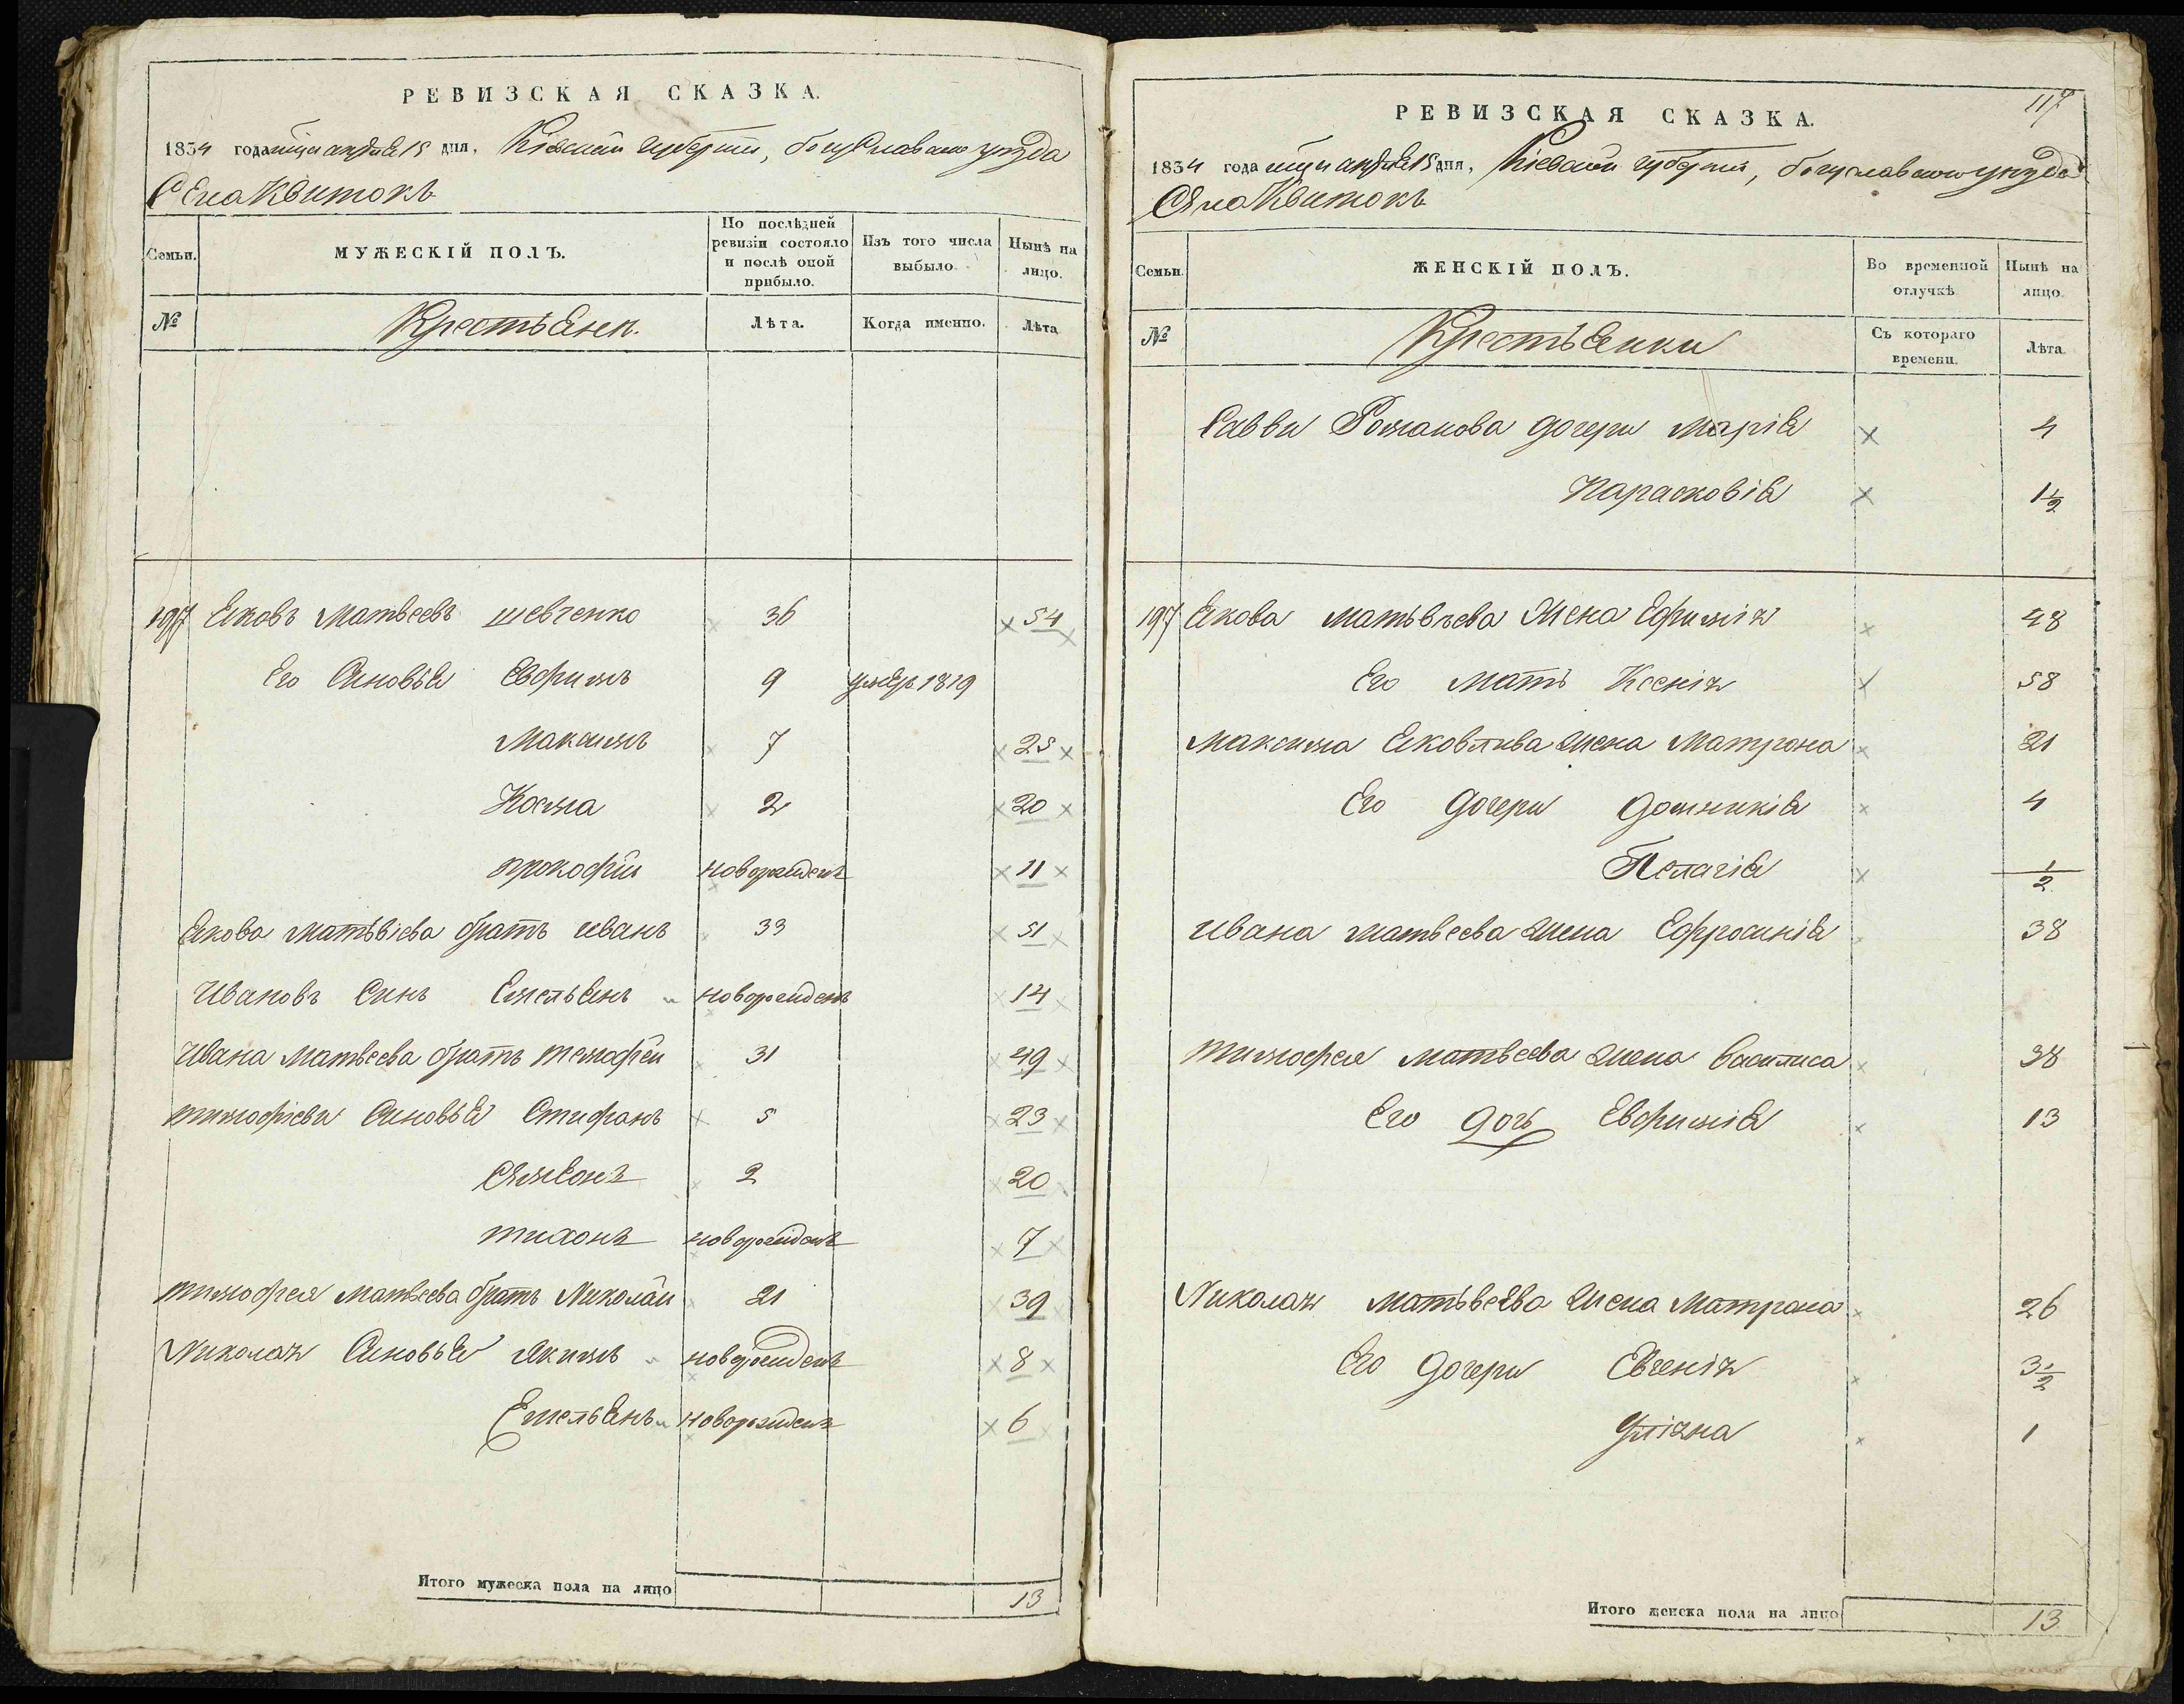 РЕВИЗСКАЯ СКАЗКА.
1834 года мца апреля 15 дня, Кіевской губерніи, богуславского уезда
Села Квитокъ
Семьи.
МУЖЕСКІЙ ПОЛЪ.
По послѣдней ревизіи состояло и послѣ оной прибыло.
Изъ того числа выбыло.
Нынѣ на лицо.
№
Крестьянн.
Лѣта.
Когда именно.
Лѣта
197 Яковъ Матвеевъ шевченко 36 54
Его Сановья Евфимъ 9 умеръ 1819
Максимъ 7 25
Косма 2 20
прокофій новорожденъ 11
Якова матьвіева братъ иванъ 33 51
Ивановъ Синъ Емельянъ новорожденъ 14
Ивана Матвеева братъ темофей 31 49
тимофіеви Синовья Стифанъ 5 23
Симеонъ 2 20
тихонъ новорожденъ 7
тимофея Матвеева братъ Николай 21 39
Николая Синовья Якимъ новорожденъ 8
Емельянъ новорожденъ 6
Итого мужеска пола на лицо 13
117
РЕВИЗСКАЯ СКАЗКА.
1834 года мца апреля 15 дня, Кіевской губерніи, богуславского уезда
Села Квитокъ
Семьи.
ЖЕНСКІЙ ПОЛЪ.
Во временной отлучкѣ
Нынѣ на лицо.
№
Крестьянки
Съ котораго времени.
Лѣта.
Савви Романова дочери Марія 4
Парасковія 1 1/2
197 Якова матьвѣева Жена Ефимія 48
Его мать Ксенія 58
Максима Яковлива жена Матрона 21
Его дочери домникія 4
Пелагія 1/2
Ивана матвеева жена Ефросинія 38
тимофея матвеева жена Василиса 38
Его дочь Евфимія 13
Николая матьвеева жена Матрона 26
Его дочери Евгенія 3 1/2
Уліяна 1
Итого женска пола на лицо 13